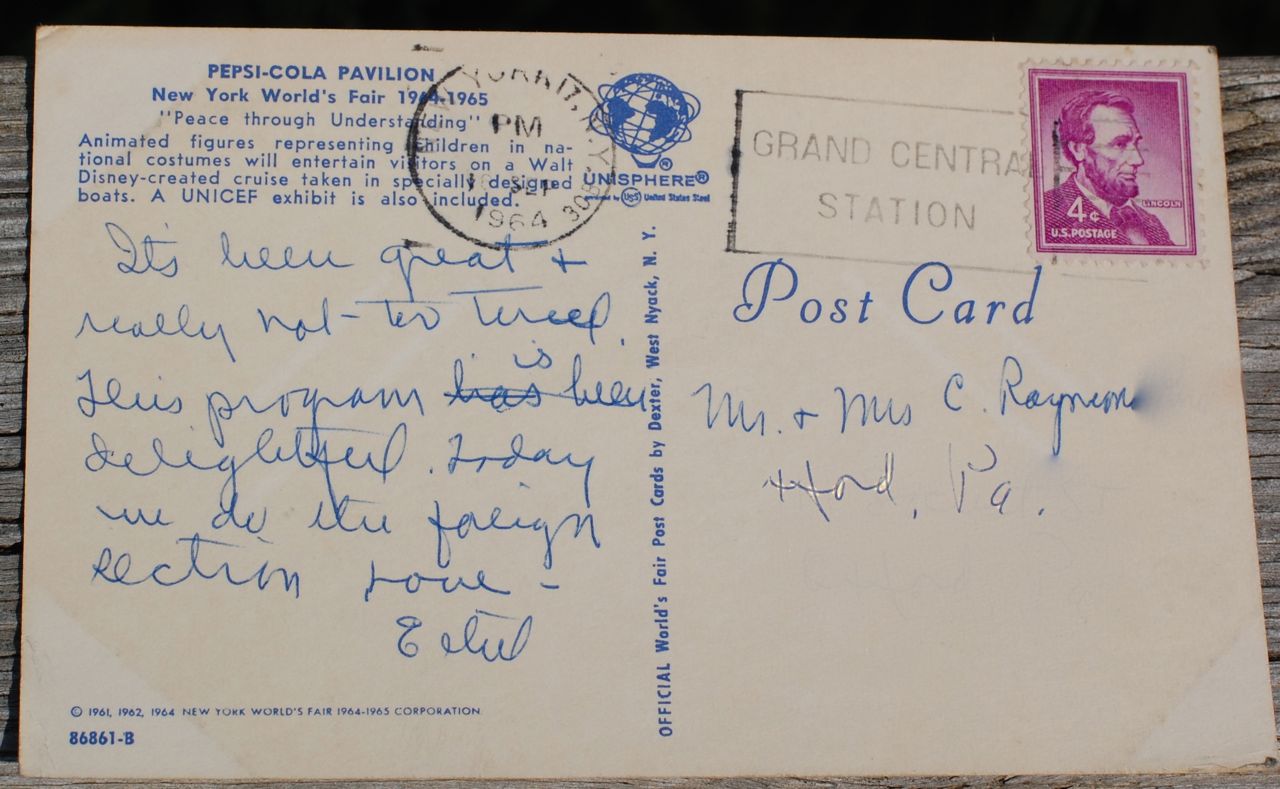 PEPSI-COLA PAVILION
New York World's Fair 1964-1965
"Peace through Understanding"
Animated figures representing children in na-
tional costumes will entertain visitors on a Walt
Disney-created cruise taken in specially designed
boats. A UNICEF exhibit is also included.
NEW YORK 17, N.Y.
PM
SEP
1964
UNISPHERE®
presented by USS United States Steel
GRAND CENTRAL
STATION
4¢
LINCOLN
U.S. POSTAGE
Post Card
It's been great +
really not too tired.
is
This program has been
delightful. Today
we do the foreign
section Love -
Ethel
Mr. + Mrs C. Raymond
Hord, Pa.
OFFICIAL World's Fair Post Cards by Dexter, West Nyack, N. Y.
© 1961, 1962, 1964 NEW YORK WORLD'S FAIR 1964-1965 CORPORATION.
86861-B